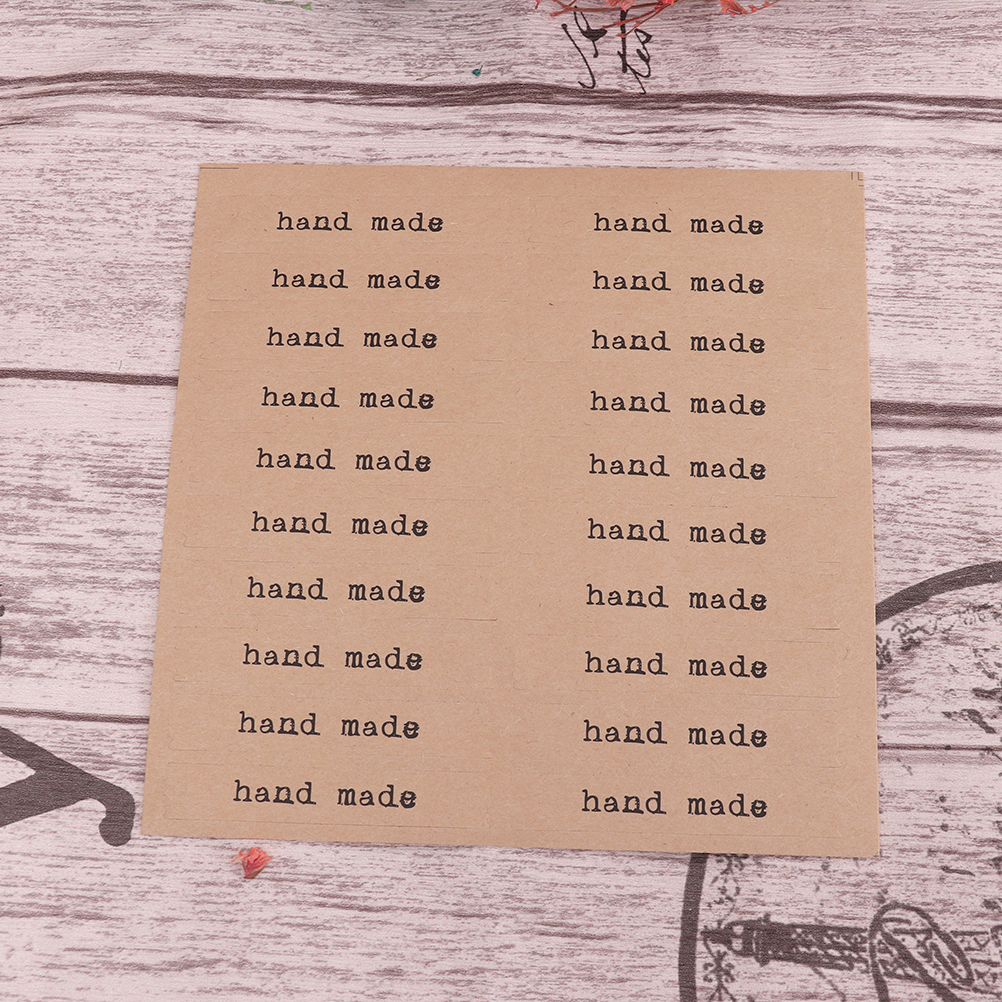 hand made hand made
hand made hand made
hand made hand made
hand made hand made
hand made hand made
hand made hand made
hand made hand made
hand made hand made
hand made hand made
hand made hand made